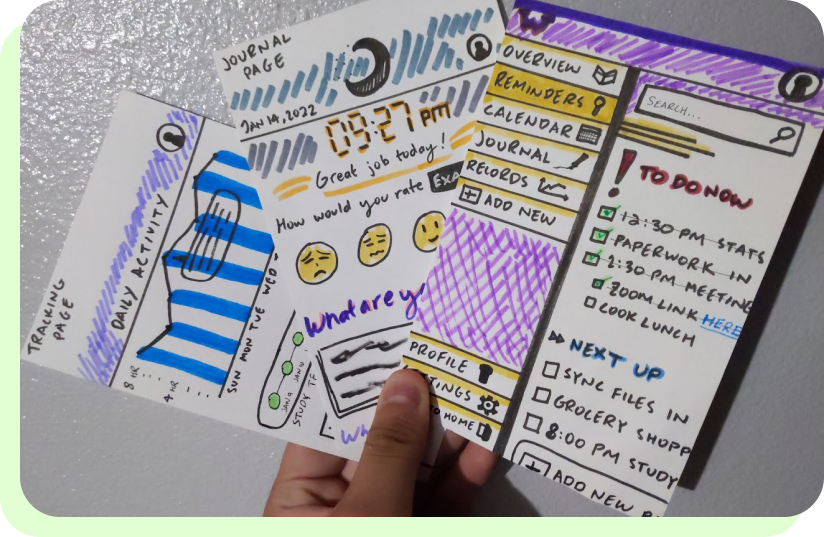 TRACKING
PAGE
DAILY ACTIVITY
8 HR
4 HR
SUN MON TUE WED
JOURNAL
PAGE
JAN 14, 2022
09:27 PM
Great job today!
How would you rate
What are
JAN 9
JAN 10
STUDY TF
OVERVIEW
REMINDERS
CALENDAR
JOURNAL
RECORDS
ADD NEW
PROFILE
HOME
SEARCH...
! TO DO NOW
12:30 PM STATS
PAPERWORK IN
1:30 PM MEETING
ZOOM LINK HERE
COOK LUNCH
NEXT UP
SYNC FILES IN
GROCERY SHOPP
8:00 PM STUDY
ADD NEW